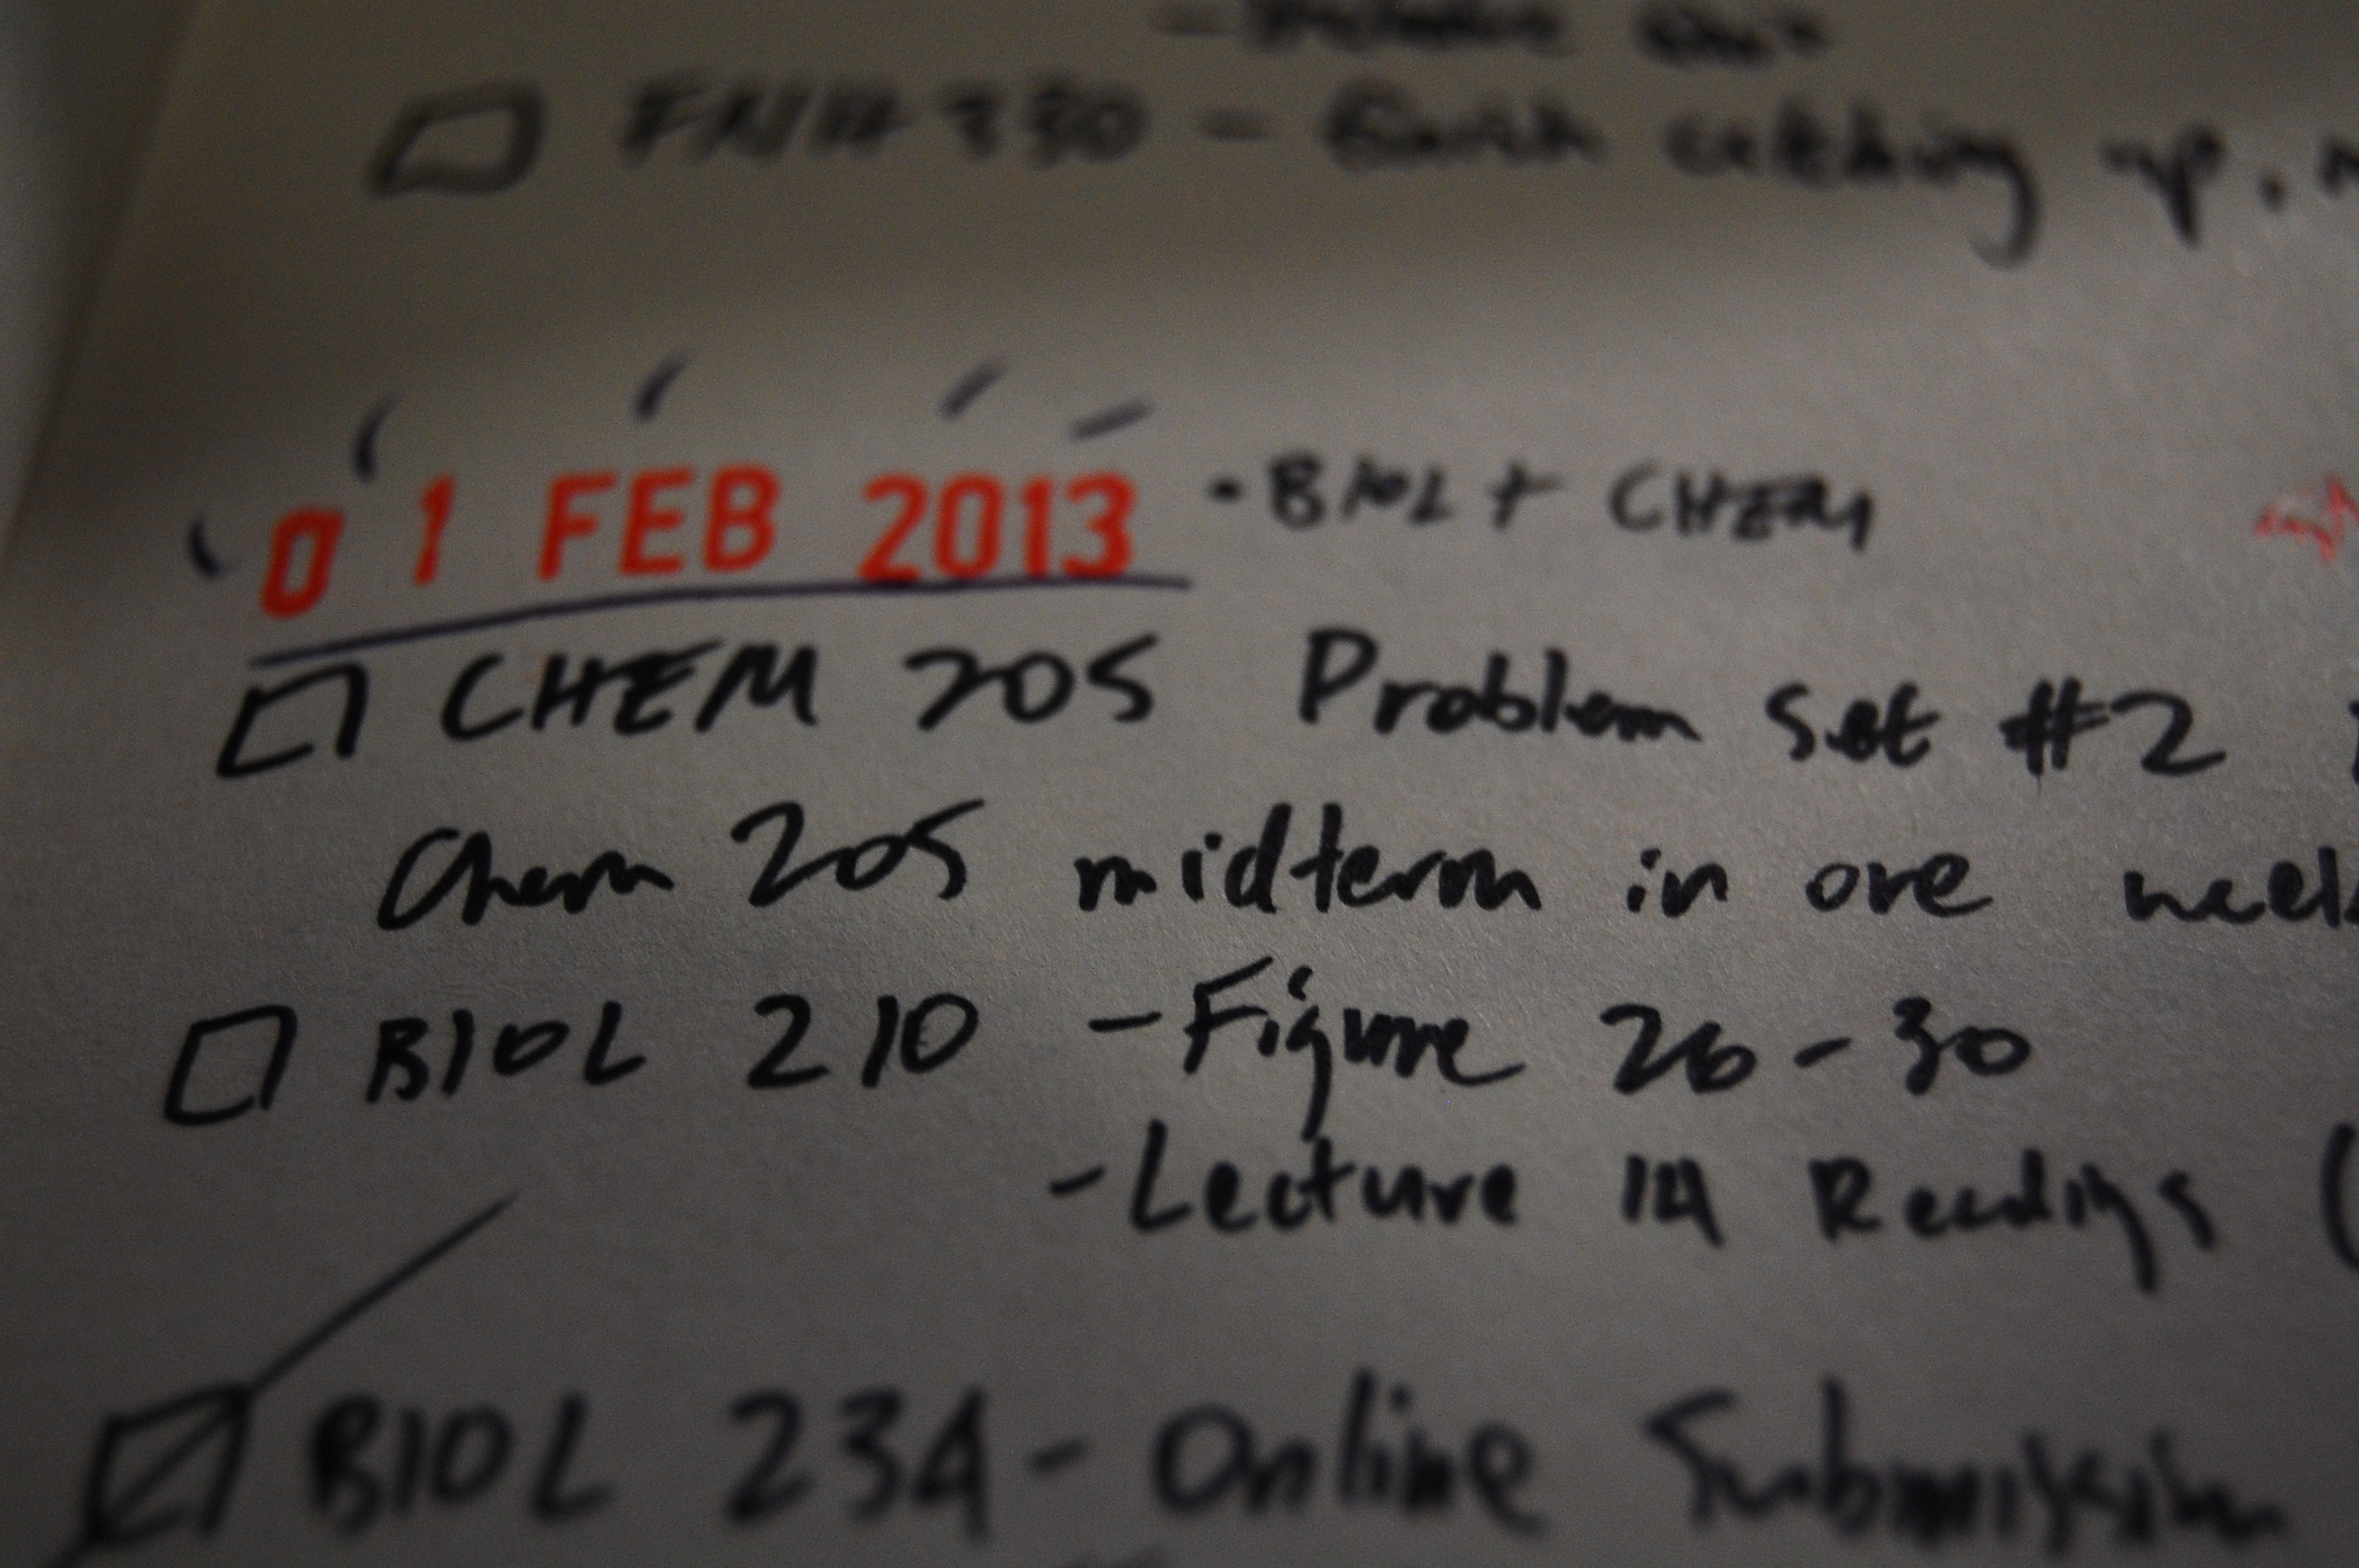 330 - catching up.
01 FEB 2013 • BIOL + CHEM
CHEM 205 Problem Set #2
Chem 205 midterm in one week
BIOL 210 - Figure 26-30
- Lecture 14 Readings (
BIOL 234 - Online Submission